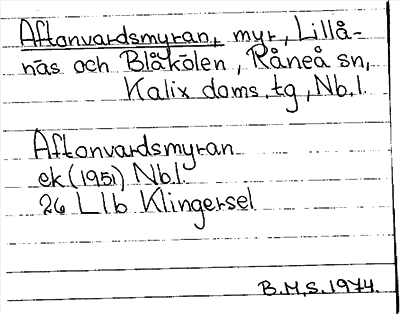 Aftonvardsmyran, myr, Lillå-
näs och Blåkölen, Råneå sn,
Kalix doms. tg, Nb.l.
Aftonvardsmyran
ek (1951) Nb.l.
26 Llb Klingersel
B.M.S. 1974.